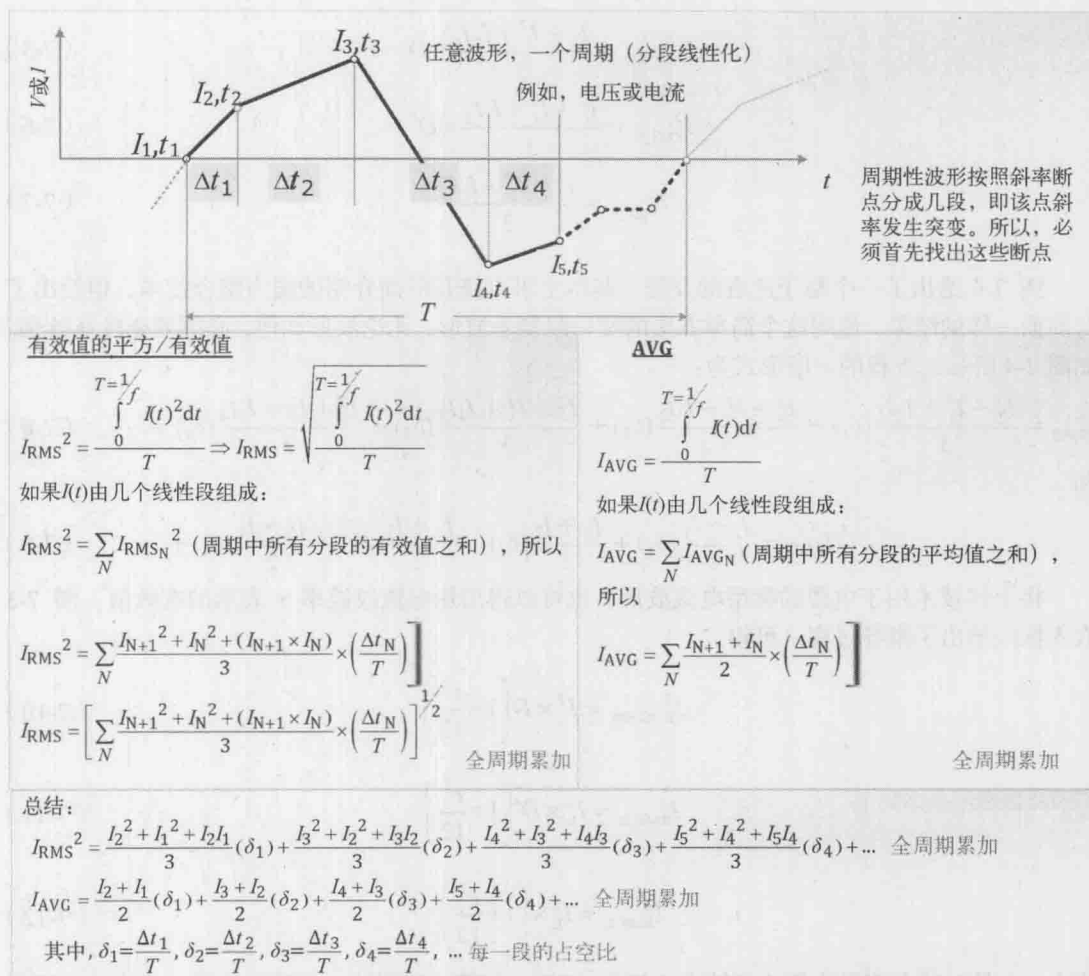 I₃,t₃
任意波形，一个周期（分段线性化）
例如，电压或电流
V或I
I₂,t₂
I₁,t₁
Δt₁ Δt₂ Δt₃ Δt₄
t
周期性波形按照斜率断
点分成几段，即该点斜
率发生突变。所以，必
须首先找出这些断点
I₅,t₅
I₄,t₄
T
有效值的平方/有效值
I_RMS² = ∫₀^(T=1/f) I(t)²dt / T ⇒ I_RMS = √(∫₀^(T=1/f) I(t)²dt / T)
如果I(t)由几个线性段组成：
I_RMS² = ∑_N I_RMS_N² (周期中所有分段的有效值之和)，所以
I_RMS² = ∑_N (I_N+1² + I_N² + (I_N+1 × I_N))/3 × (Δt_N/T)]
I_RMS = [∑_N (I_N+1² + I_N² + (I_N+1 × I_N))/3 × (Δt_N/T)]^1/2
全周期累加
AVG
I_AVG = ∫₀^(T=1/f) I(t)dt / T
如果I(t)由几个线性段组成：
I_AVG = ∑_N I_AVG_N (周期中所有分段的平均值之和)，
所以
I_AVG = ∑_N (I_N+1 + I_N)/2 × (Δt_N/T)]
全周期累加
总结：
I_RMS² = (I₂² + I₁² + I₂I₁)/3 (δ₁) + (I₃² + I₂² + I₃I₂)/3 (δ₂) + (I₄² + I₃² + I₄I₃)/3 (δ₃) + (I₅² + I₄² + I₅I₄)/3 (δ₄) + ... 全周期累加
I_AVG = (I₂ + I₁)/2 (δ₁) + (I₃ + I₂)/2 (δ₂) + (I₄ + I₃)/2 (δ₃) + (I₅ + I₄)/2 (δ₄) + ... 全周期累加
其中, δ₁=Δt₁/T, δ₂=Δt₂/T, δ₃=Δt₃/T, δ₄=Δt₄/T, ... 每一段的占空比